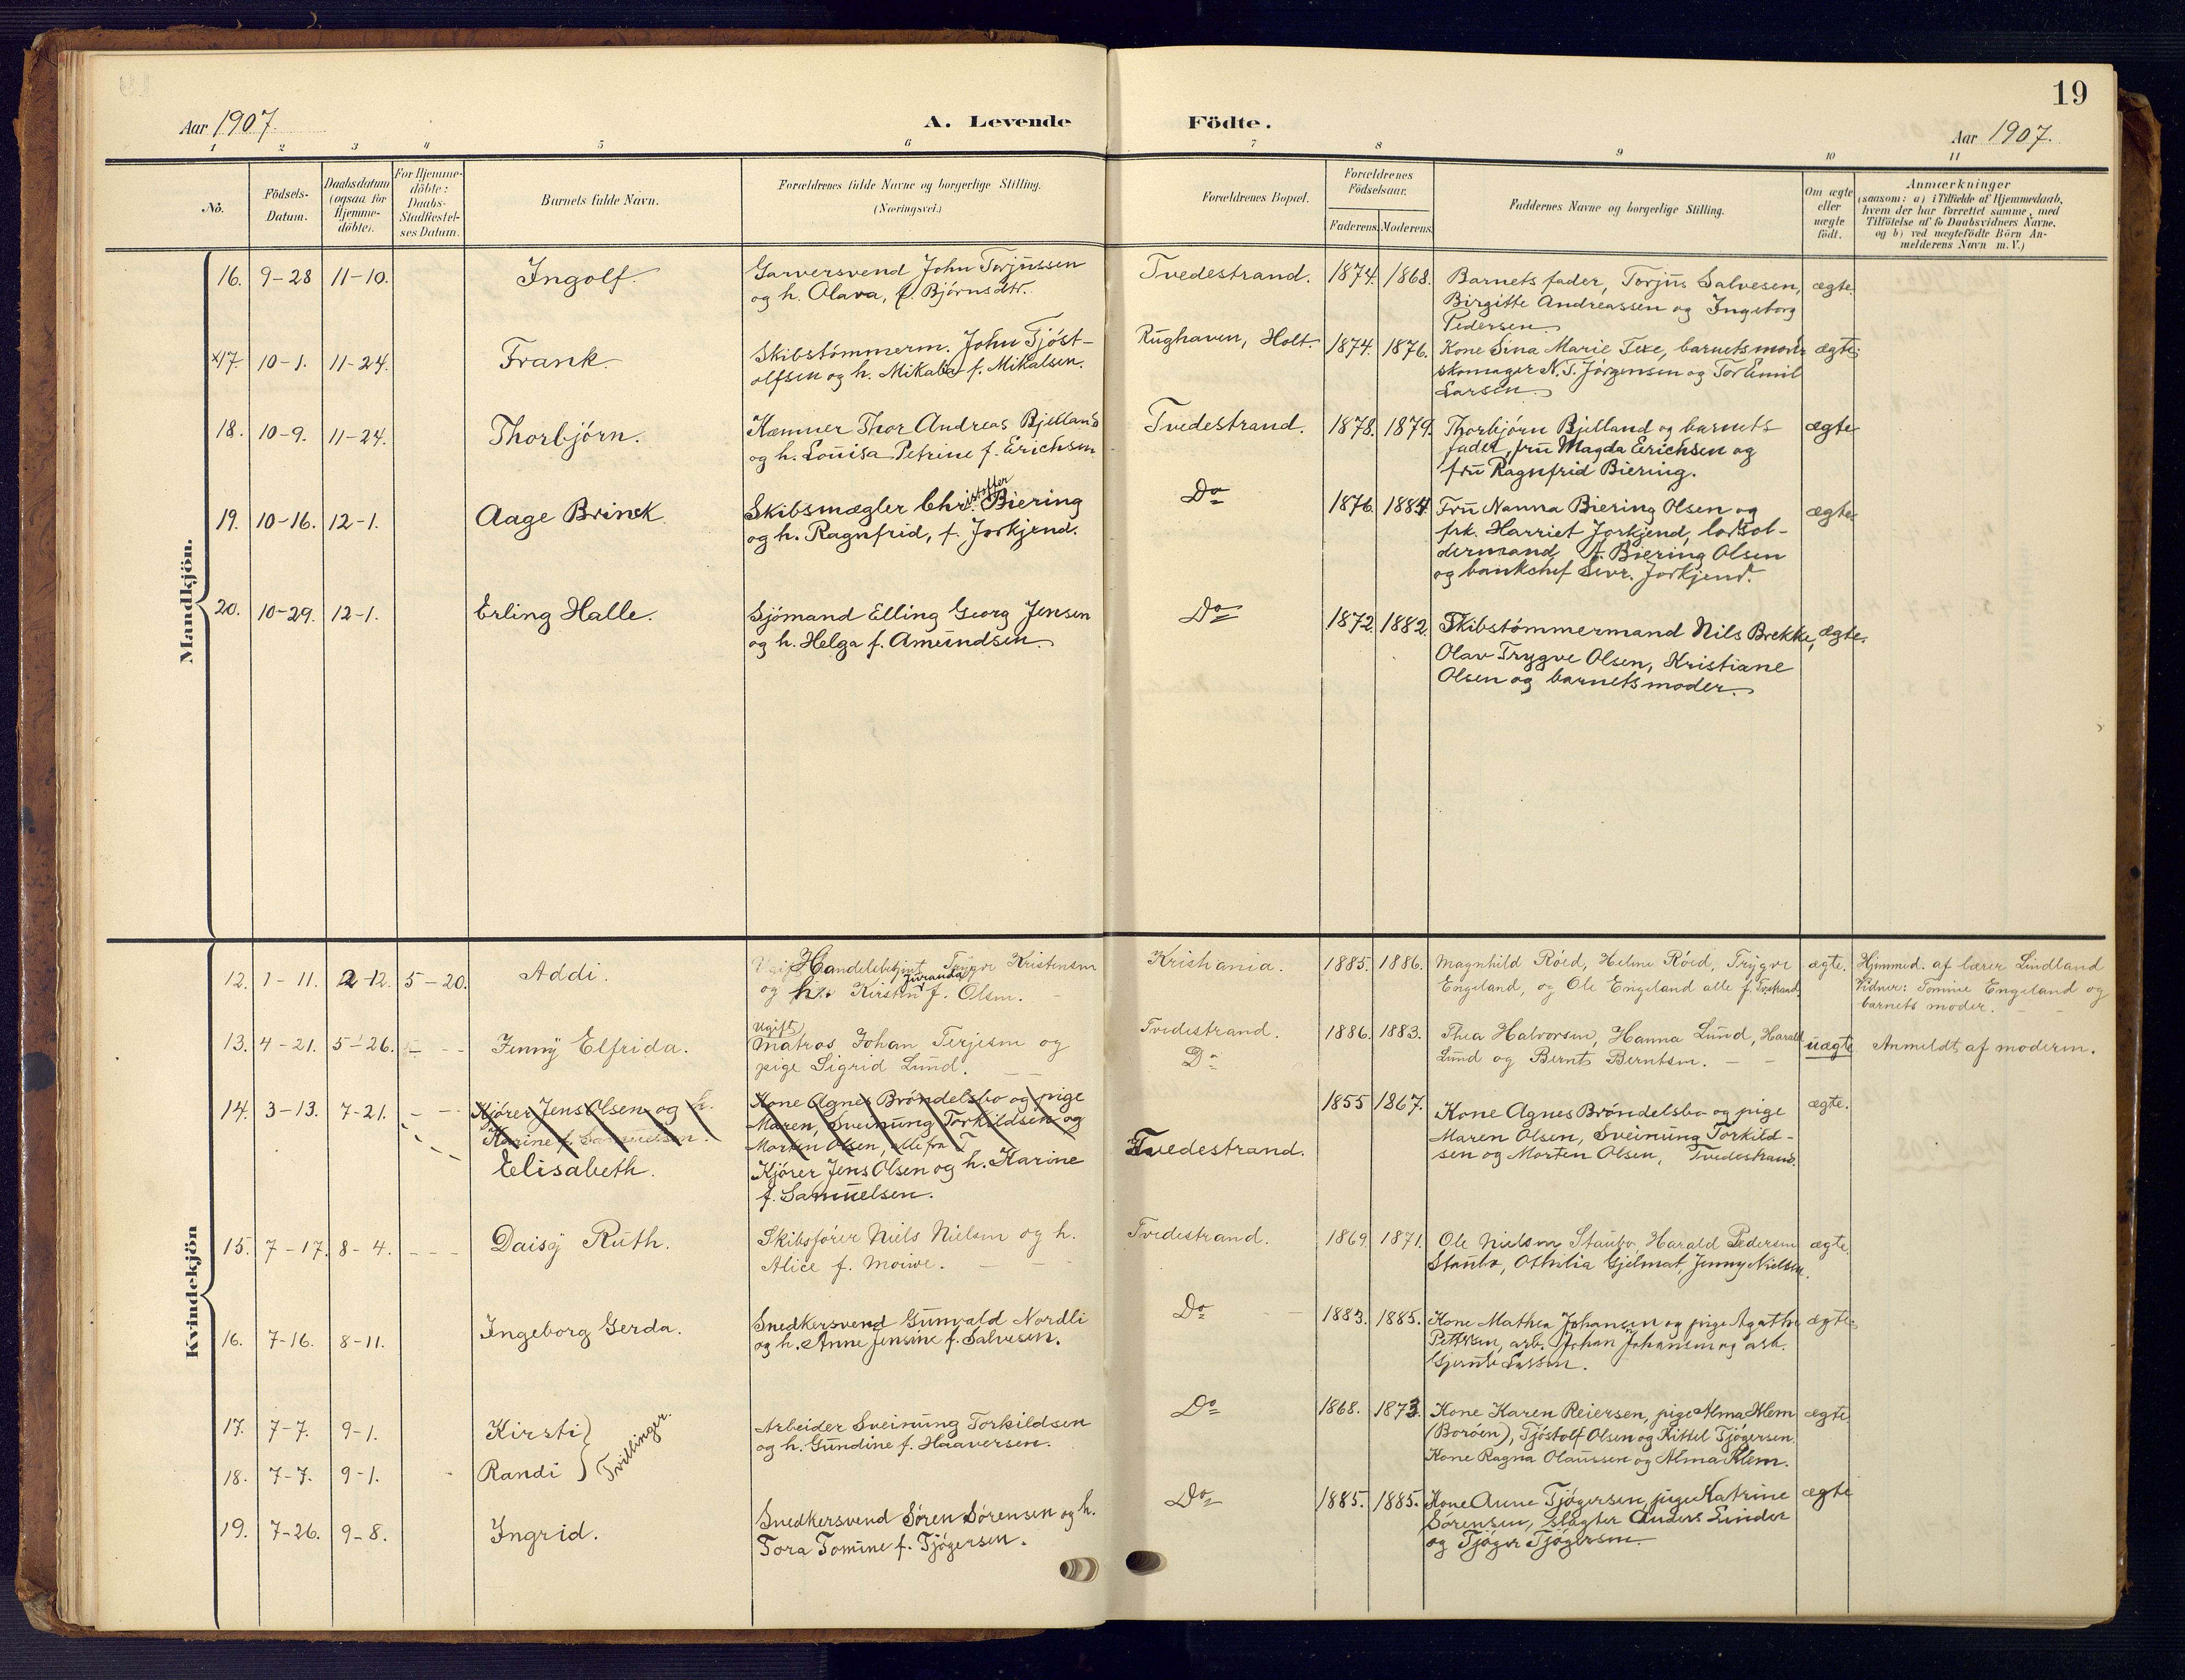 19
Aar 1907.
A. Levende Födte.
Aar 1907.
1 2 3 4 5 6 7 8 9 10 11
No.
Födsels-
Datum.
Daabsdatum
(ogsaa for
Hjemme-
döbte).
For Hjemme-
döbte:
Daabs-
Stadfæstel-
ses Datum.
Barnets fulde Navn.
Forældrenes fulde Navne og borgerlige Stilling.
(Næringsvei.)
Forældrenes Bopæl.
Forældrenes
Födselsaar.
Faderens. Moderens.
Faddernes Navne og borgerlige Stilling.
Om ægte
eller
uægte
födt.
Anmærkninger
(saasom: a) i Tilfælde af Hjemmedaab,
hvem der har forrettet samme, med
Tilföielse af to Daabsvidners Navne,
og b) ved uægtefödte Börn An-
melderens Navn m. V.)
Mandkjön.
16. 9-28 11-10. Ingolf.
Garversvend John Torjussen
og h. Olava, f. Bjørnsdtr.
Tvedestrand. 1874. 1868.
Barnets fader, Torjus Salvesen,
Birgitte Andreassen og Ingeborg
Pedersen.
ægte.
×17. 10-1. 11-24. Frank.
Skibstømmerm. John Tjøst-
olfsen og h. Mikalia f. Mikalsen.
Rughaven, Holt. 1874. 1876.
Kone Sina Marie Texe, barnets moder
skomager N. T. Jørgensen og Tor Emil
Larsen.
ægte.
18. 10-9. 11-24. Thorbjørn.
Kæmner Thor Andreas Bjelland
og h. Louisa Petrine f. Erichsen
Tvedestrand. 1878. 1879.
Thorbjørn Bjelland og barnets
fader, fru Magda Erichsen og
fru Ragnfrid Biering.
ægte
19. 10-16. 12-1. Aage Brinck.
Skibsmægler Christoffer Biering
og h. Ragnfrid, f. Jorkjend.
Do 1876. 1884.
Fru Nanna Biering Olsen og
frk. Harriet Jorkjend, lodsol-
dermand A. Biering Olsen
og bankchef Sevr. Jorkjend.
ægte
20. 10-29. 12-1. Erling Halle.
Sjømand Elling Georg Jensen
og h. Helga f. Amundsen.
Do 1872. 1882.
Skibstømmermand Nils Brekke,
Olav Trygve Olsen, Kristiane
Olsen og barnets moder.
ægte.
Kvindekjön
12. 1-11. 2-12. 5-20. Addi.
Handelsbetjent Trygve Kristensen
og h. Kirsten Juranda f. Olsen.
Kristiania. 1885. 1886.
Magnhild Røed, Helene Røed, Trygve
Engeland, og Ole Engeland alle f. Tvestrand.
ægte.
Hjemmed. af lærer Lindland
Vidner: Tomine Engeland og
barnets moder.
13. 4-21. 5-26. Jenny Elfrida.
Ugift
matros Johan Terjesen og
pige Sigrid Lund.
Tvedestrand.
Do
1886. 1883.
Thea Halvorsen, Hanna Lund, Harald
Lund og Bernt Berntsen.
uægte
Anmeldt af moderen.
14. 3-13. 7-21.
Kjører Jens Olsen og h.
Karine f. Samuelsen.
Elisabeth.
Kone Agnes Brøndelsbo og pige
Maren, Sveinung Torkildsen og
Morten Olsen, alle fra T
Kjører Jens Olsen og h. Karine
f. Samuelsen.
Tvedestrand. 1855 1867.
Kone Agnes Brøndelsbo og pige
Maren Olsen, Sveinung Torkild-
sen og Morten Olsen, Tvedestrand.
ægte.
15. 7-17. 8-4. Daisy Ruth.
Skibsfører Niels Nielsen og h.
Alice f. Moiwe.
Tvedestrand. 1869 1871.
Ole Nielsen Staubø, Harald Pedersen
Staubø, Othilia Gjelmat, Jenny Nielsen.
ægte.
16. 7-16. 8-11. Ingeborg Gerda.
Snedkersvend Gunvald Nordli
og h. Anne Jensine f. Salvesen.
Do 1883. 1885.
Kone Mathea Johansen og pige Agathe
Pettersen, arb. Johan Johansen og arb.
Gjerulf Larsen.
ægte.
17. 7-7. 9-1. Kirsti
18. 7-7. 9-1. Randi
Tvillinger.
Arbeider Sveinung Torkildsen
og h. Gundine f. Haaversen.
Do 1868. 1873.
Kone Karen Reiersen, pige Alma Klem
(Borøen), Tjøstolf Olsen og Kittel Tjøgersen.
Kone Ragna Olaussen og Alma Klem.
ægte.
19. 7-26. 9-8. Ingrid.
Snedkersvend Søren Sørensen og h.
Tora Tomine f. Tjøgersen.
Do 1885. 1885.
Kone Anne Tjøgersen, pige Katrine
Sørensen, slagter Anders Linder
og Tjøger Tjøgersen.
ægte